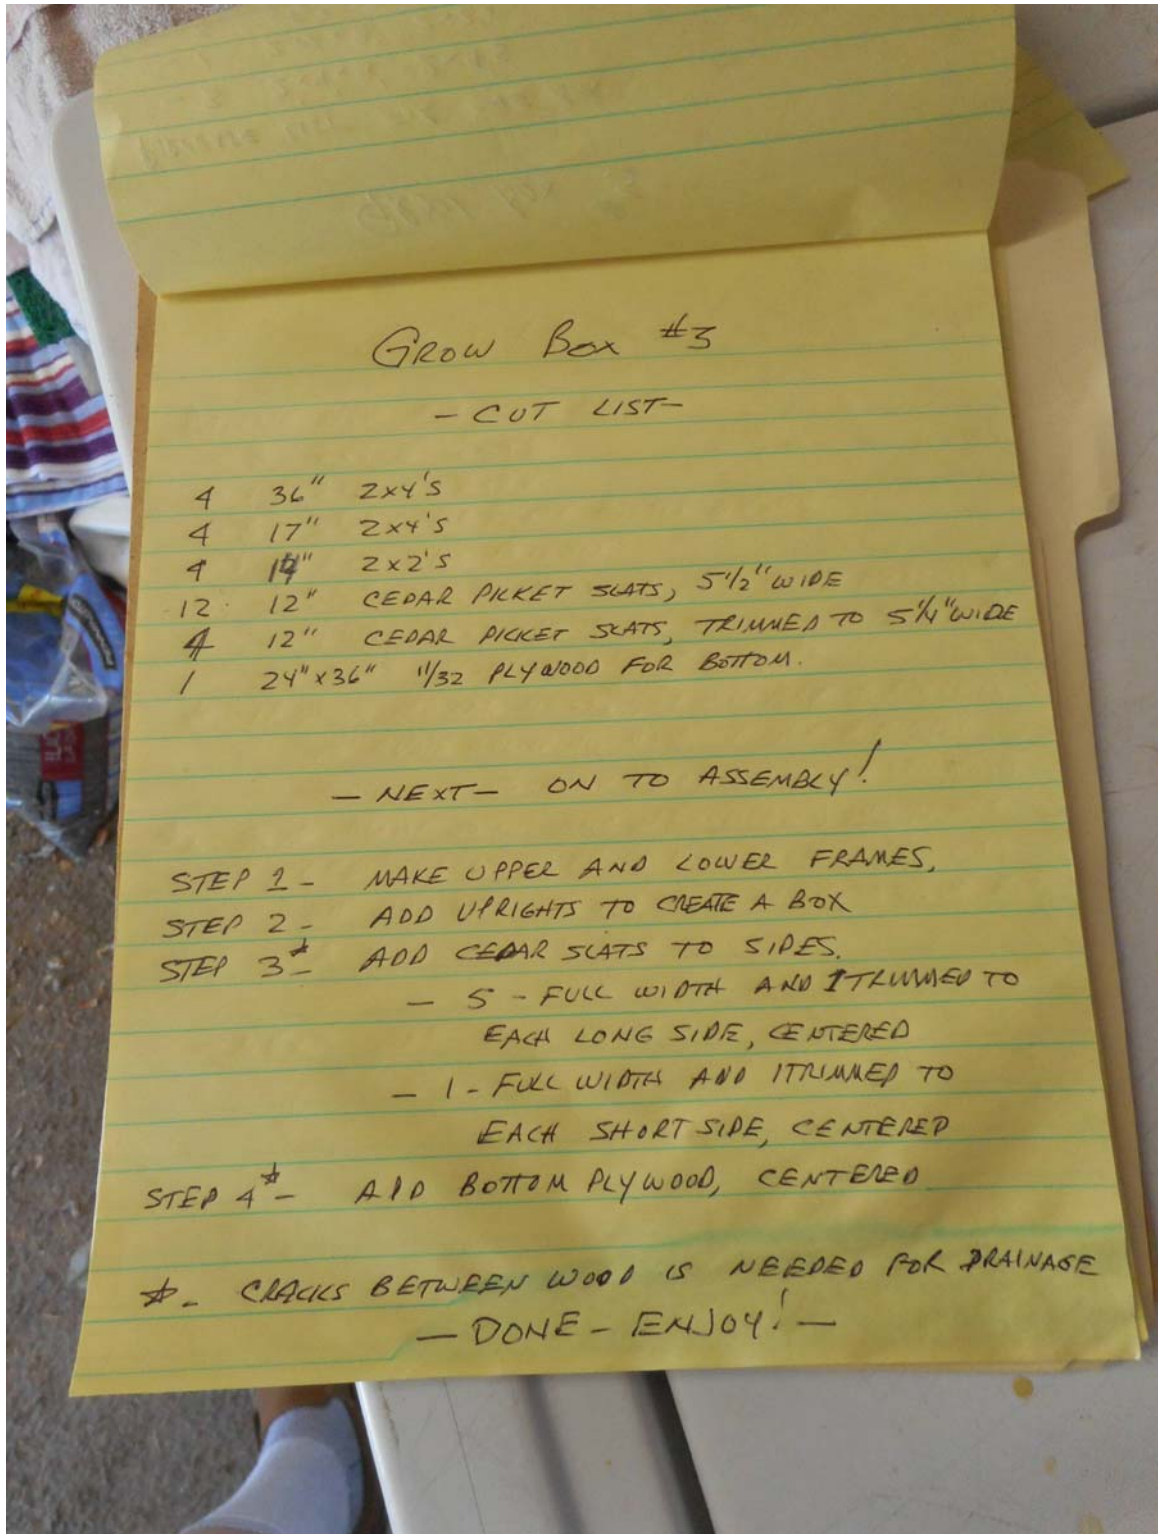 GROW BOX #3
- CUT LIST -
4 36" 2x4'S
4 17" 2x4'S
4 2x2'S
12 12" CEDAR PICKET SLATS, 5 1/2" WIDE
4 12" CEDAR PICKET SLATS, TRIMMED TO 5 1/4" WIDE
1 24" x 36" 11/32 PLYWOOD FOR BOTTOM.
- NEXT - ON TO ASSEMBLY!
STEP 1 - MAKE UPPER AND LOWER FRAMES,
STEP 2 - ADD UPRIGHTS TO CREATE A BOX
STEP 3* - ADD CEDAR SLATS TO SIDES.
- 5 - FULL WIDTH AND 1 TRIMMED TO
EACH LONG SIDE, CENTERED
- 1 - FULL WIDTH AND 1 TRIMMED TO
EACH SHORT SIDE, CENTERED
STEP 4* - ADD BOTTOM PLYWOOD, CENTERED
* - CRACKS BETWEEN WOOD IS NEEDED FOR DRAINAGE
- DONE - ENJOY! -